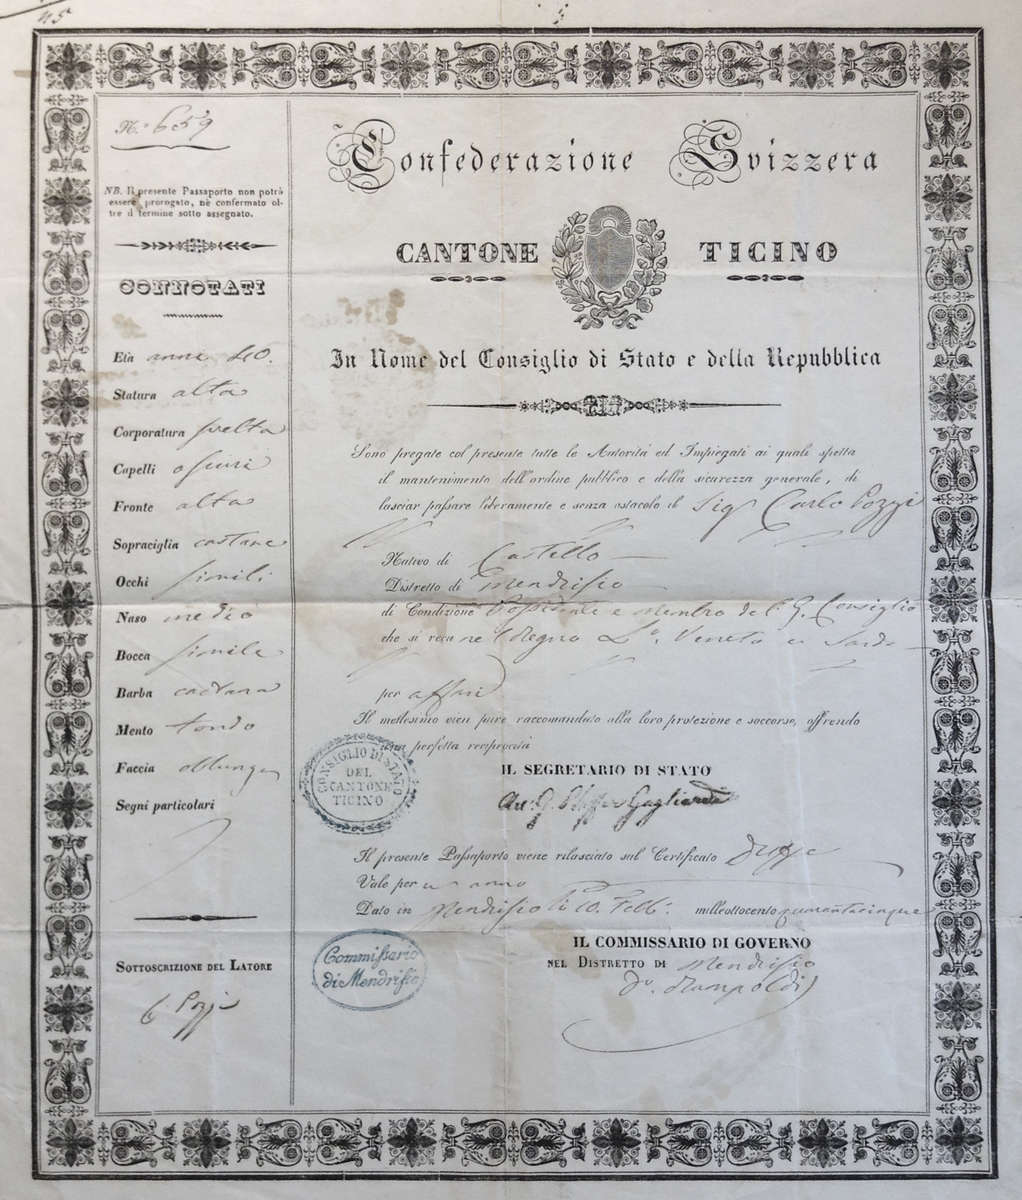 45
N.º 659
NB. Il presente Passaporto non potrà
essere prorogato, nè confermato ol-
tre il termine sotto assegnato.
CONNOTATI
Età anni 40.
Statura alta
Corporatura svelta
Capelli oscuri
Fronte alta
Sopraciglia castane
Occhi simili
Naso medio
Bocca simile
Barba castana
Mento tondo
Faccia oblunga
Segni particolari
SOTTOSCRIZIONE DEL LATORE
C Pozzi
Confederazione Svizzera
CANTONE TICINO
In Nome del Consiglio di Stato e della Repubblica
Sono pregate col presente tutte le Autorità ed Impiegati ai quali spetta
il mantenimento dell'ordine pubblico e della sicurezza generale, di
lasciar passare liberamente e senza ostacolo il Sigr Carlo Pozzi
Nativo di Castello
Distretto di Mendrisio
di Condizione Possidente e Membro del G. Consiglio
che si reca nel Regno L.º Veneto e Sardo
per affari
Il medesimo vien pure raccomandato alla loro protezione e soccorso, offrendo
una perfetta reciprocità
CONSIGLIO DI STATO
DEL
CANTONE
TICINO
IL SEGRETARIO DI STATO
Il presente Passaporto viene rilasciato sul Certificato
Vale per un anno
Dato in Mendrisio li 10. Febb.º milleottocento quarantacinque
IL COMMISSARIO DI GOVERNO
NEL DISTRETTO DI Mendrisio
Commissario
di Mendrisio